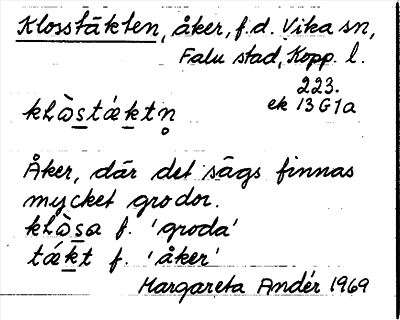 Klosstäkten, åker, f.d. Vika sn,
Falu stad, Kopp. l.
223.
ek 13 G 1a
kLɔ̀s̲tǽk̲tn̥
Åker, där det sägs finnas
mycket grodor.
kLɔ̀s̲a f. 'groda'
tǽk̲t f. 'åker'
Margareta Andér 1969